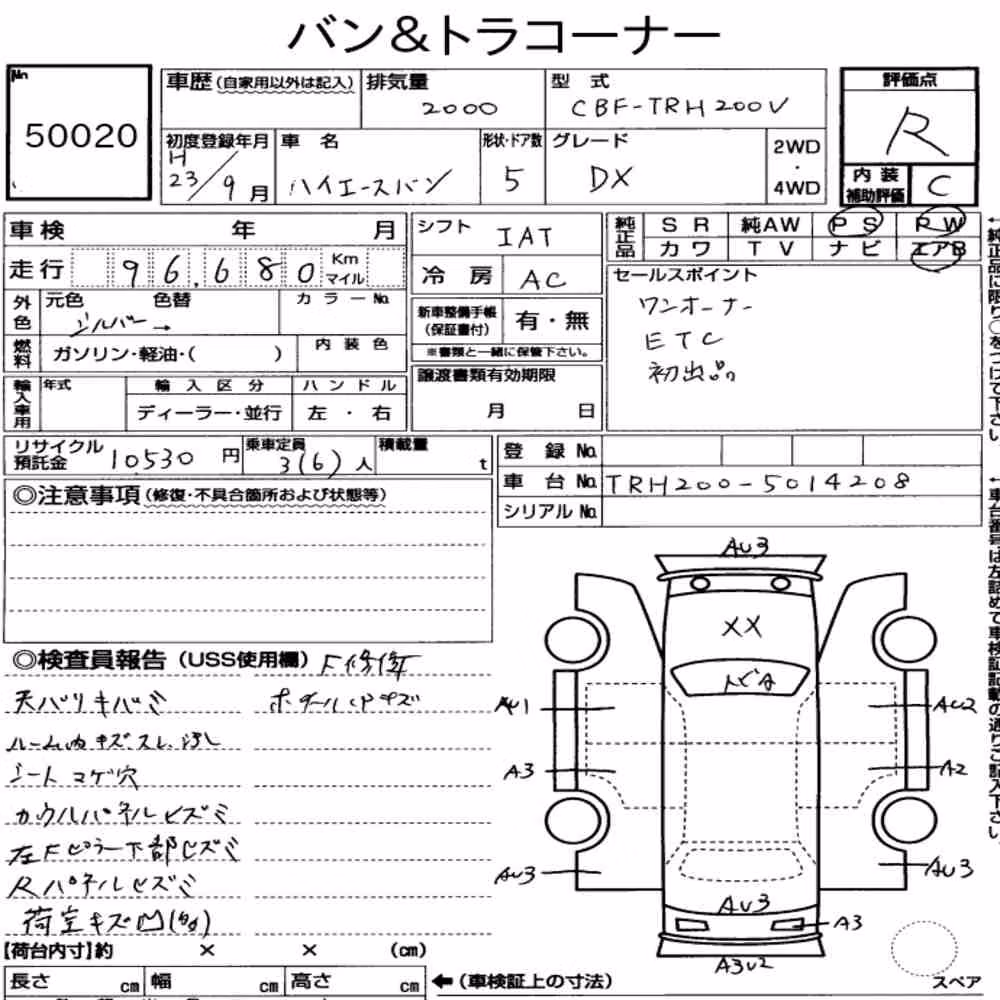 バン&トラコーナー
No.
50020
車歴(自家用以外は記入)
排気量
2000
型式
CBF-TRH200V
評価点
R
初度登録年月
H
23/9月
車名
ハイエースバン
形状・ドア数
5
グレード
DX
2WD
・
4WD
内装
補助評価
C
車検 年 月
シフト
IAT
純正品
SR 純AW PS PW
カワ TV ナビ エアB
走行 96,680 Km マイル
冷房 AC
セールスポイント
ワンオーナー
ETC
初出品
外色
元色 色替
シルバー→
カラーNo.
新車整備手帳
(保証書付)
有・無
※書類と一緒に保管下さい。
燃料
ガソリン・軽油・( )
内装色
譲渡書類有効期限
月 日
輸入車用
年式
輸入区分
ディーラー・並行
ハンドル
左・右
リサイクル
預託金
10530円
乗車定員
3(6)人
積載量
t
登録No.
車台No. TRH200-5014208
シリアルNo.
◎注意事項(修復・不具合箇所および状態等)
◎検査員報告(USS使用欄) F修復
天バリキバミ
ルーム内キズスレ、汚レ
シートコゲ穴
カウルパネルヒズミ
左Fピラー下部ヒズミ
Rパネルヒズミ
荷室キズ凹(多)
AU3
XX
トビA
AU1
AU2
A3
A2
AU3
AU3
AU3
A3
A3U2
スペア
【荷台内寸】約 × × (cm)
長さ cm 幅 cm 高さ cm
←(車検証上の寸法)
←純正品に限り○をつけて下さい。
←車台番号は左詰めで車検証記載の通りご記入下さい。